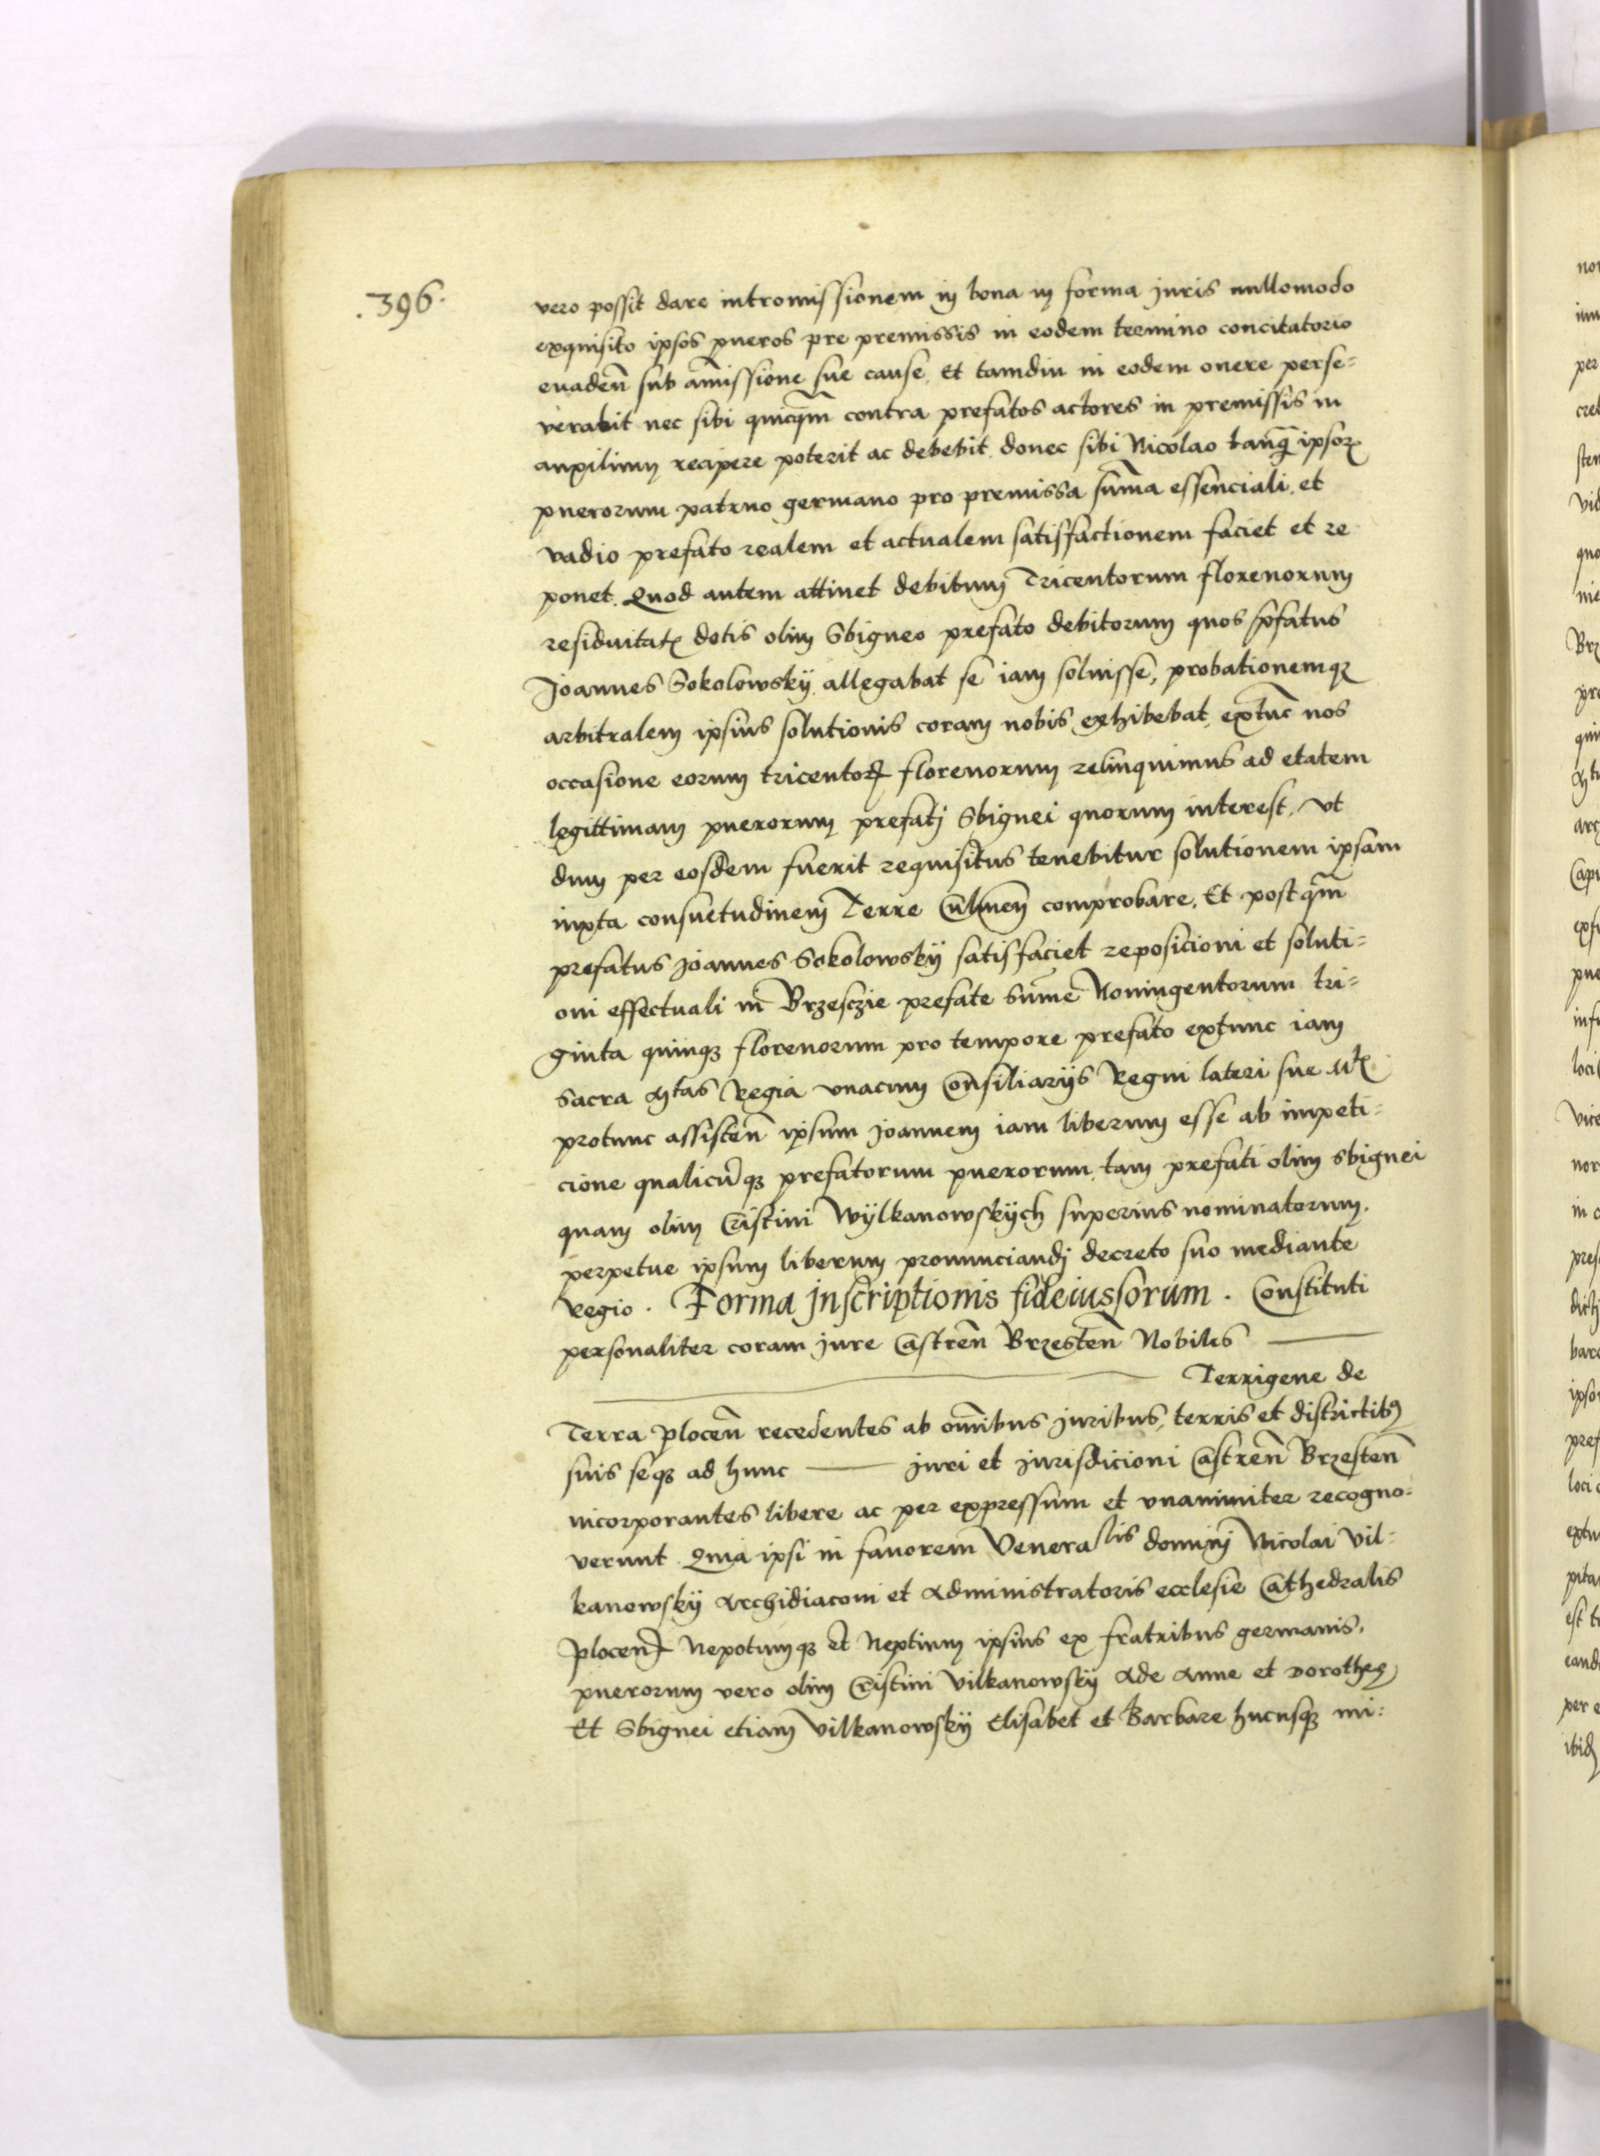 .396.
vero possit dare intromissionem in bona in forma juris nullomodo
exquisito ipsos pueros pre premissis in eodem termino concitatorio
euaden̄ sub am̄issione sue cause. Et tamdiu in eodem onere perse=
verabit nec sibi quicq̄m contra prefatos actores in premissis in
auxilium recipere poterit ac debebit. donec sibi Nicolao tanq̄ ipsoꝝ
puerorum patruo germano pro premissa sum̄a essenciali. et
vadio prefato realem et actualem satisfactionem faciet et re
ponet. Quod autem attinet debitum Tricentorum florenorum
residuitatꝭ dotis olim Sbigneo prefato debitorum quos p̄fatus
Joannes Sokolowskÿ allegabat se iam soluisse, probationemqꝫ
arbitralem ipsius solutionis coram nobis exhibebat. extu̅c nos
occasione eorum tricentoꝝ florenorum relinquimus ad etatem
legittimam puerorum prefatj Sbignei quorum interest. Vt
dum per eosdem fuerit requisitus tenebitur solutionem ipsam
iuxta consuetudinem Terre Culmen̄ comprobare. Et postq̄m
prefatus Joannes Sokolowskÿ satisfaciet reposicioni et soluti=
oni effectuali in Brzesczie prefate Sum̄e Noningentorum tri=
ginta quinqꝫ florenorum pro tempore prefato extunc iam
Sacra Mtas Regia vnacum Consiliarijs Regni lateri sue Mtꝭ
protunc assisten̄ ipsum Joannem iam liberum esse ab impeti=
cione qualicu̅qꝫ prefatorum puerorum. tam prefati olim Sbignei
quam olim Cristini Wÿlkanowskÿch superius nominatorum.
perpetue ipsum liberum pronunciandj decreto suo mediante
Regio. Forma Inscriptionis fideiussorum. Constituti
personaliter coram jure Castren̄ Brzesten̄ Nobiles
Terrigene de
Terra Plocen̄ recedentes ab om̄ibus juribus, terris et districtibꝰ
suis seqꝫ ad hunc juri et jurisdicioni Castren̄ Brzesten̄
incorporantes libere ac per expressum et vnanimiter recogno=
verunt. Quia ipsi in fauorem Venera lis dominj Nicolai Vil=
kanowskÿ Archidiaconi et Administratoris ecclesie Cathedralis
Plocen̄ Nepotumqꝫ et Neptium ipsius ex fratribus germanis,
puerorum vero olim Cristini Vilkanowskÿ Ade Anne et Dorothee
Et Sbignei etiam Vilkanowskÿ Elisabet et Barbare hucusqꝫ mi=